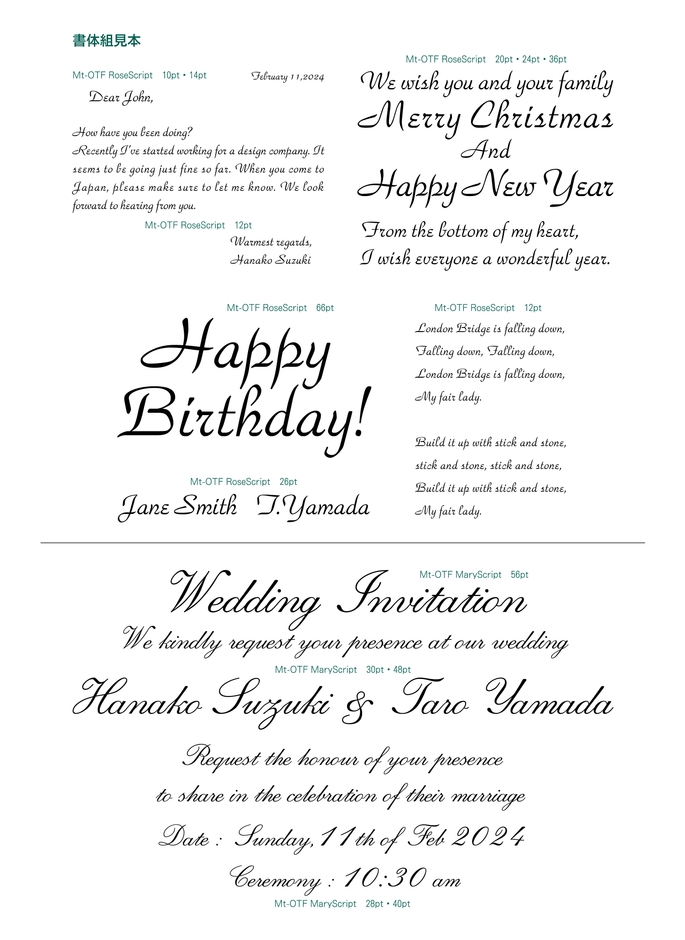 書体組見本
Mt-OTF RoseScript 10pt・14pt
February 11,2024
Dear John,
How have you been doing?
Recently I've started working for a design company. It
seems to be going just fine so far. When you come to
Japan, please make sure to let me know. We look
forward to hearing from you.
Mt-OTF RoseScript 12pt
Warmest regards,
Hanako Suzuki
Mt-OTF RoseScript 20pt・24pt・36pt
We wish you and your family
Merry Christmas
And
Happy New Year
From the bottom of my heart,
I wish everyone a wonderful year.
Mt-OTF RoseScript 66pt
Happy
Birthday!
Mt-OTF RoseScript 26pt
Jane Smith T.Yamada
Mt-OTF RoseScript 12pt
London Bridge is falling down,
Falling down, Falling down,
London Bridge is falling down,
My fair lady.
Build it up with stick and stone,
stick and stone, stick and stone,
Build it up with stick and stone,
My fair lady.
Mt-OTF MaryScript 56pt
Wedding Invitation
We kindly request your presence at our wedding
Mt-OTF MaryScript 30pt・48pt
Hanako Suzuki & Taro Yamada
Request the honour of your presence
to share in the celebration of their marriage
Date : Sunday, 11th of Feb 2024
Ceremony : 10:30 am
Mt-OTF MaryScript 28pt・40pt